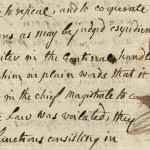 to repeal, and to cooperate
as may be judged expedien
in the Continua handl
in plain words that it
in the chief Magistrate to
Law was violated, they
functions consisting in